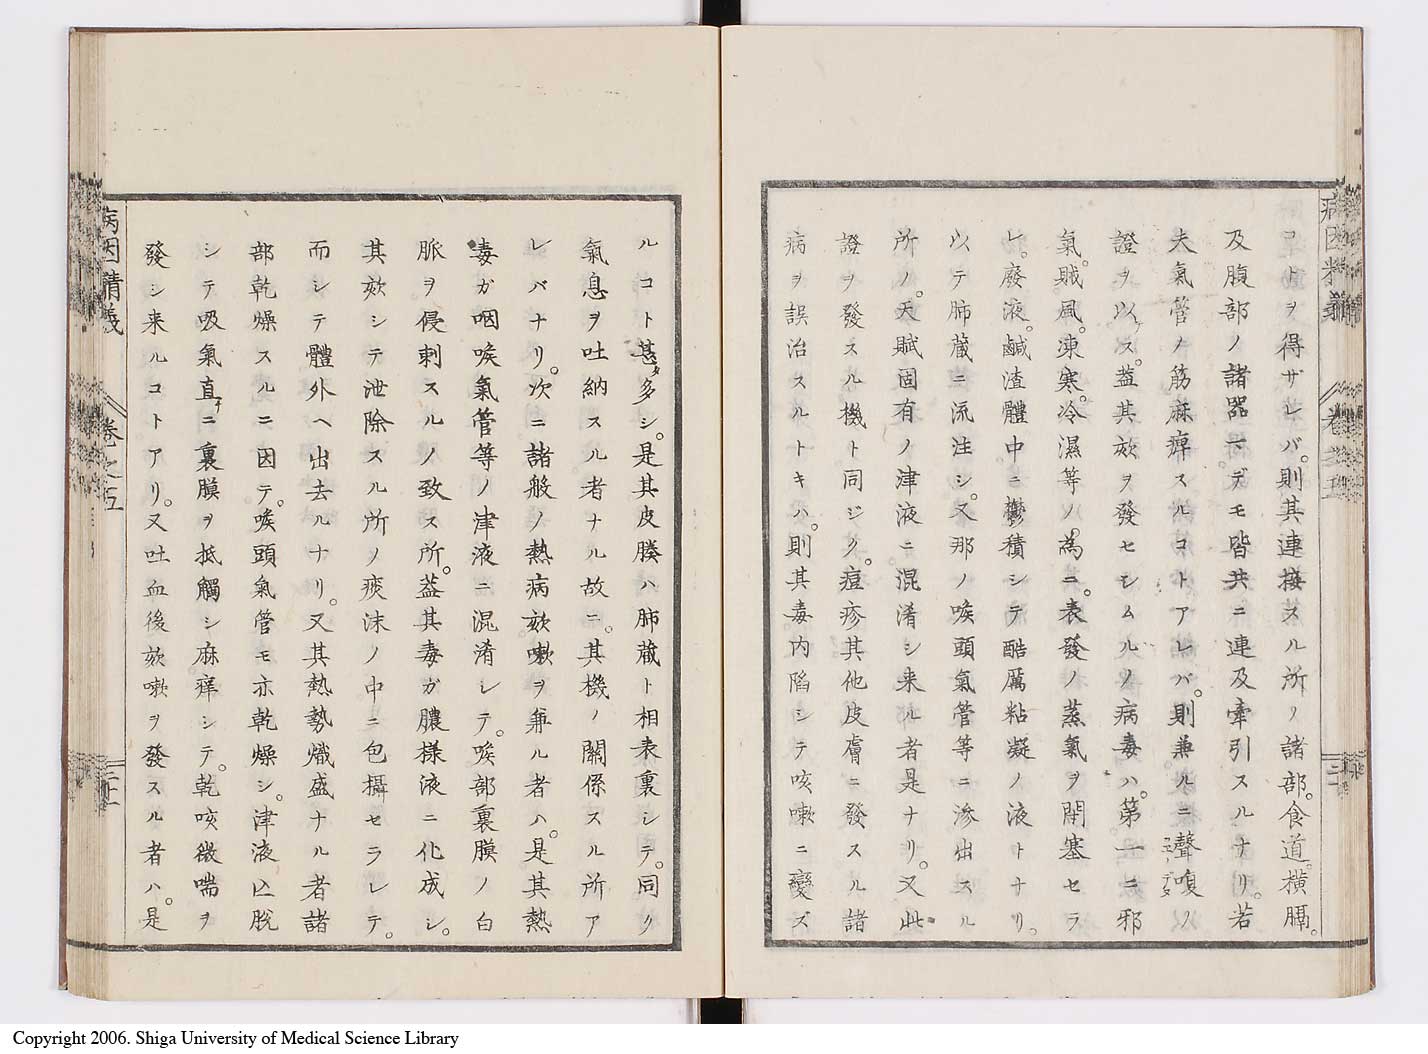 コトヲ得ザレバ。則其連接スル所ノ諸部。食道。横膈。
及腹部ノ諸器マデモ皆共ニ連及牽引スルナリ。若
夫氣管ノ筋麻痺スルコトアレバ。則兼ルニ聲嗄ノ
證ヲ以ス。蓋其欬ヲ發セシムルノ病毒ハ。第一ニ邪
氣。賊風。凍寒。冷濕等ノ。為ニ。表發ノ蒸氣ヲ閉塞セラ
レ。廢液。鹹渣體中ニ鬱積シテ酷厲粘凝ノ液トナリ。
以テ肺蔵ニ流注シ。又那ノ喉頭氣管等ニ滲出スル
所ノ。天賦固有ノ津液ニ混淆シ来ル者是ナリ。又此
證ヲ發スル機ト同ジク。痘疹其他皮膚ニ發スル諸
病ヲ誤治スルトキハ。則其毒内陷シテ咳嗽ニ變ズ
ルコト甚タ多シ。是其皮膜ハ肺蔵ト相表裏シテ。同ク
氣息ヲ吐納スル者ナル故ニ。其機ノ關係スル所ア
レバナリ。次ニ諸般ノ熱病欬嗽ヲ兼ル者ハ。是其熱
毒ガ咽喉氣管等ノ津液ニ混淆シテ。喉部裏膜ノ白
脈ヲ侵刺スルノ致ス所。蓋其毒ガ膿様液ニ化成シ。
其欬シテ泄除スル所ノ痰沫ノ中ニ包攝セラレテ。
而シテ體外ヘ出去ルナリ。又其熱勢熾盛ナル者諸
部乾燥スルニ因テ。喉頭氣管モ亦乾燥シ。津液亡脱
シテ吸氣直チニ裏膜ヲ抵觸シ麻痒シテ。乾咳微喘ヲ
發シ来ルコトアリ。又吐血後欬嗽ヲ發スル者ハ。是
病因精義
巻之五
Copyright 2006. Shiga University of Medical Science Library